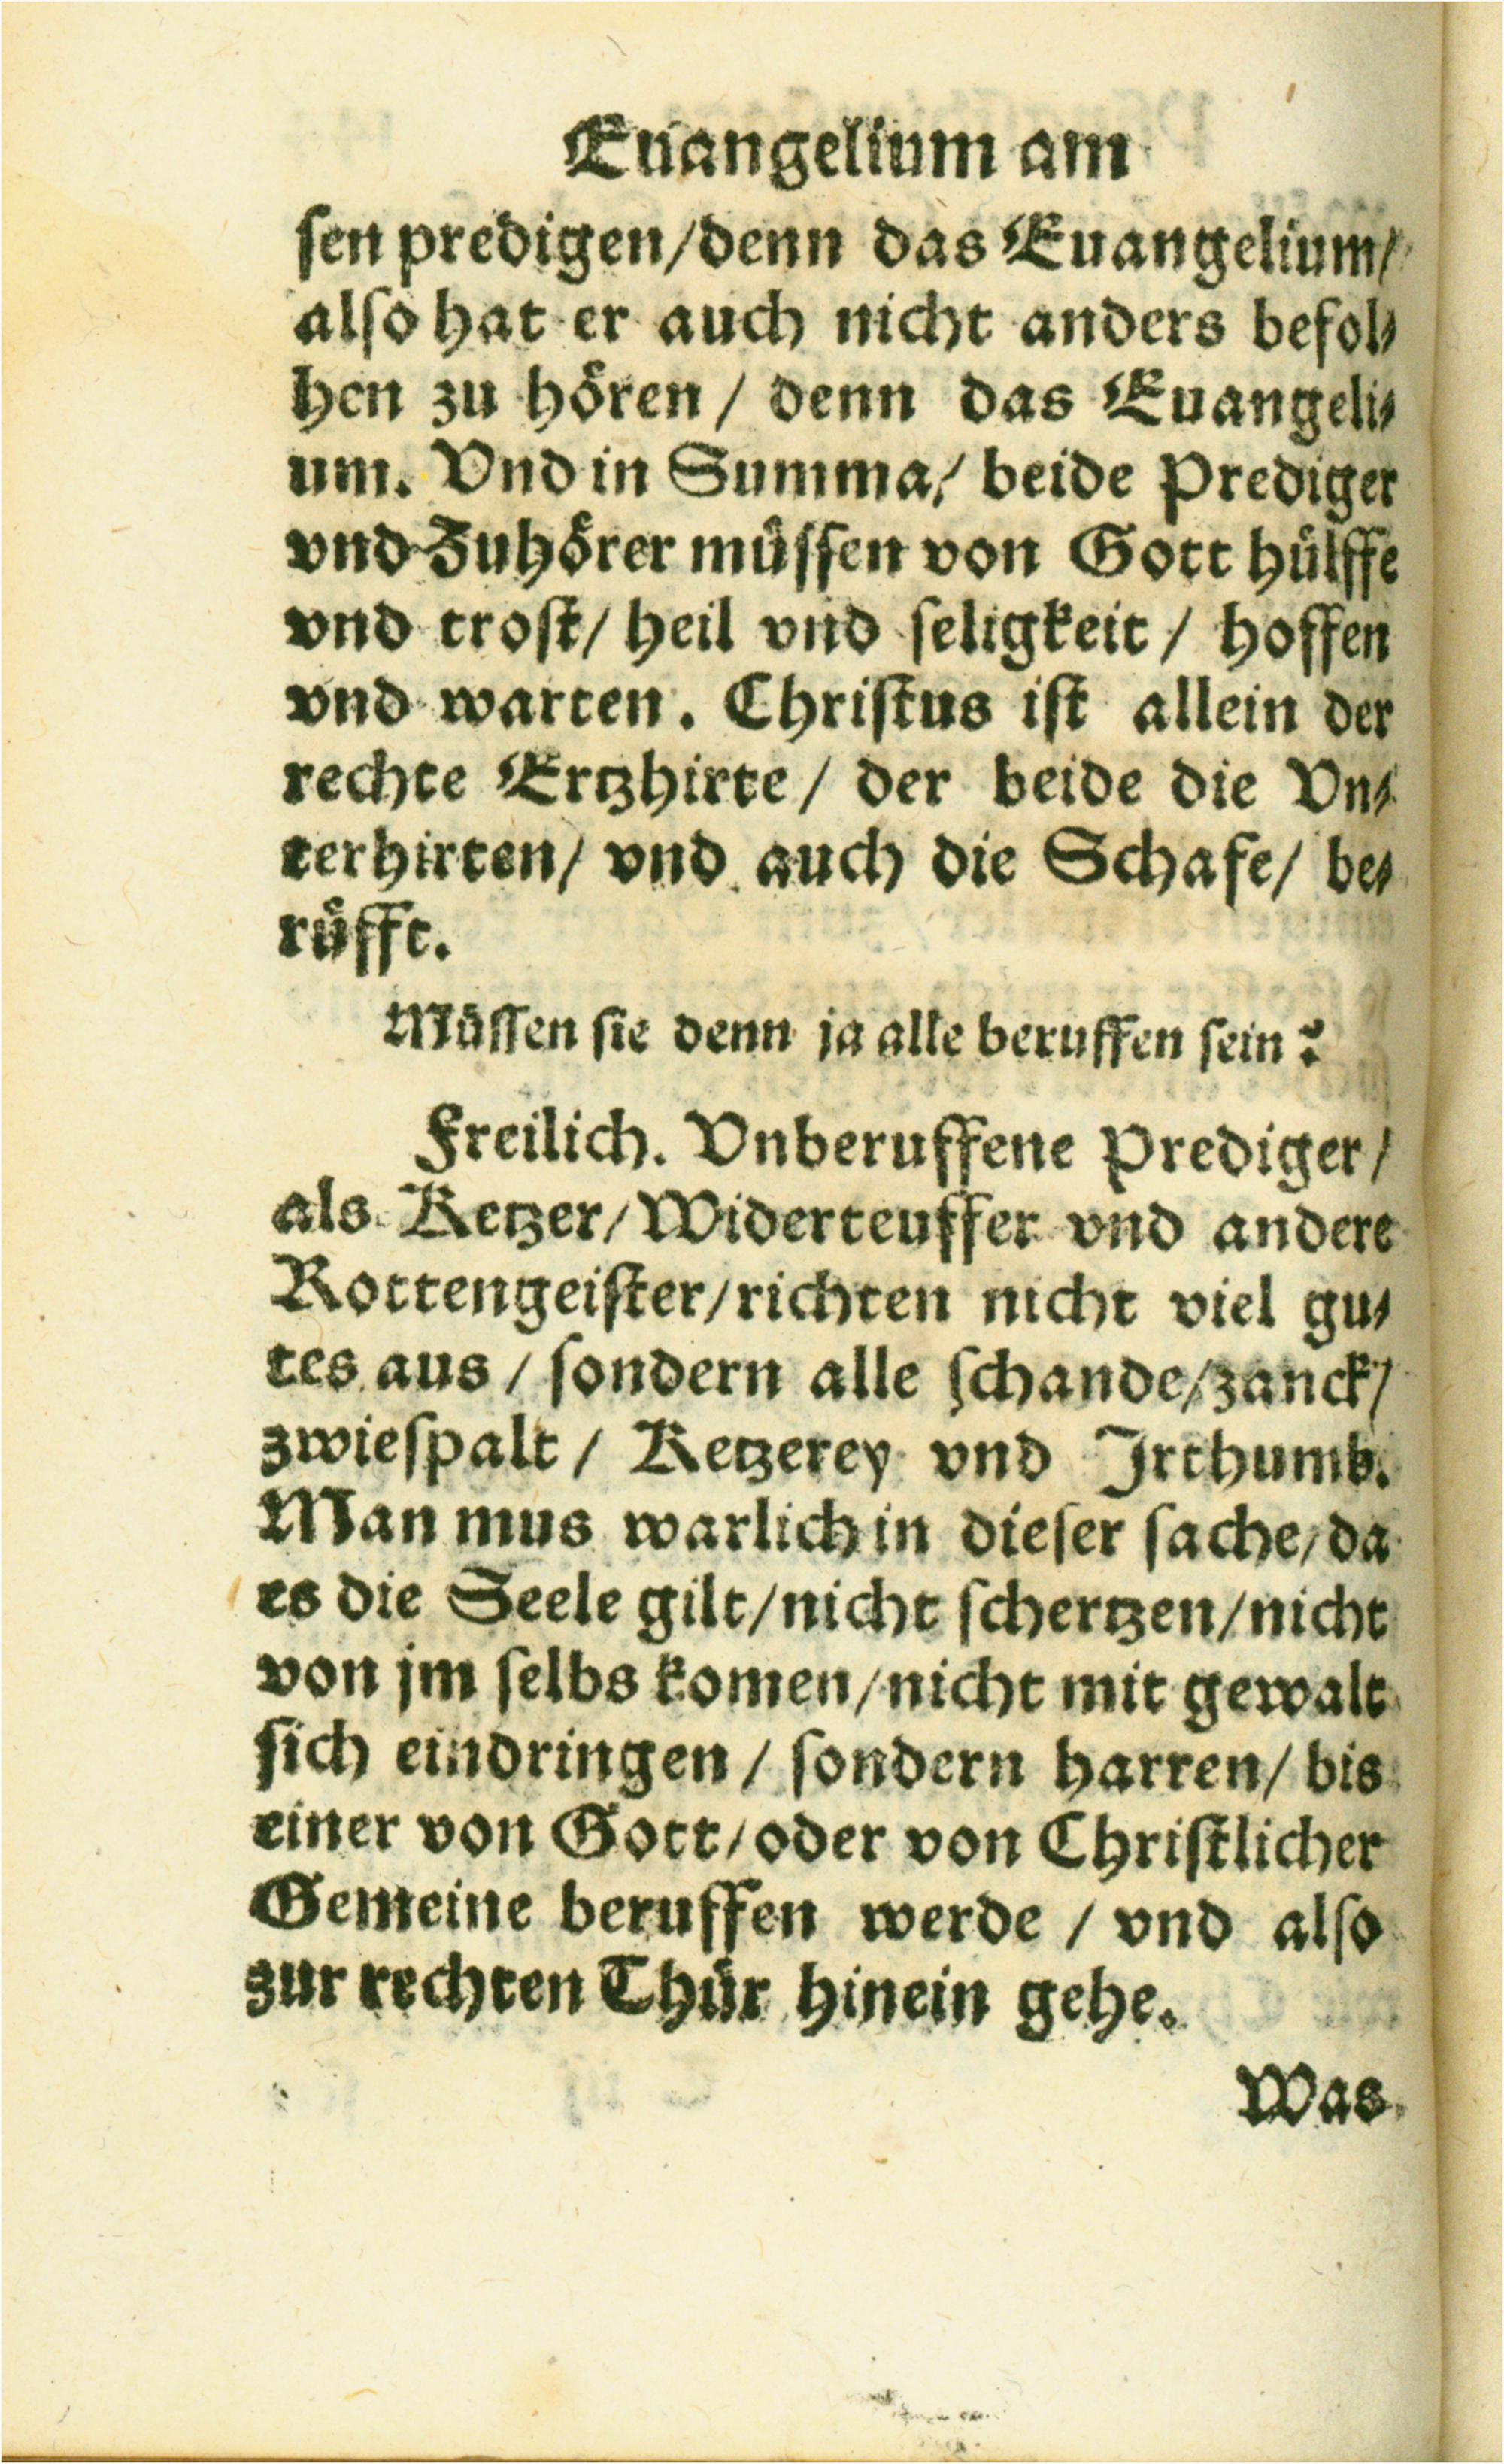 Euangelium am
ſen predigen/denn das Euangelium/
alſo hat er auch nicht anders befol⸗
hen zu hoͤren / denn das Euangeli⸗
um. Vnd in Summa/ beide Prediger
vnd Zuhoͤrer muͤſſen von Gott huͤlffe
vnd troſt/ heil vnd ſeligkeit / hoffen
vnd warten. Chriſtus iſt allein der
rechte Ertzhirte / der beide die Vn⸗
terhirten/ vnd auch die Schafe/ be⸗
ruͤfft.
Muͤſſen ſie denn ja alle beruffen ſein?
Freilich. Vnberuffene Prediger/
als Ketzer/Widerteuffer vnd andere
Rottengeiſter/richten nicht viel gu⸗
tes aus / ſondern alle ſchande/zanck/
zwieſpalt / Ketzerey vnd Jrthumb.
Man mus warlich in dieſer ſache/da
es die Seele gilt/nicht ſchertzen/nicht
von jm ſelbs komen/nicht mit gewalt
ſich eindringen / ſondern harren/ bis
einer von Gott/oder von Chriſtlicher
Gemeine beruffen werde / vnd alſo
zur rechten Thuͤr hinein gehe.
Was